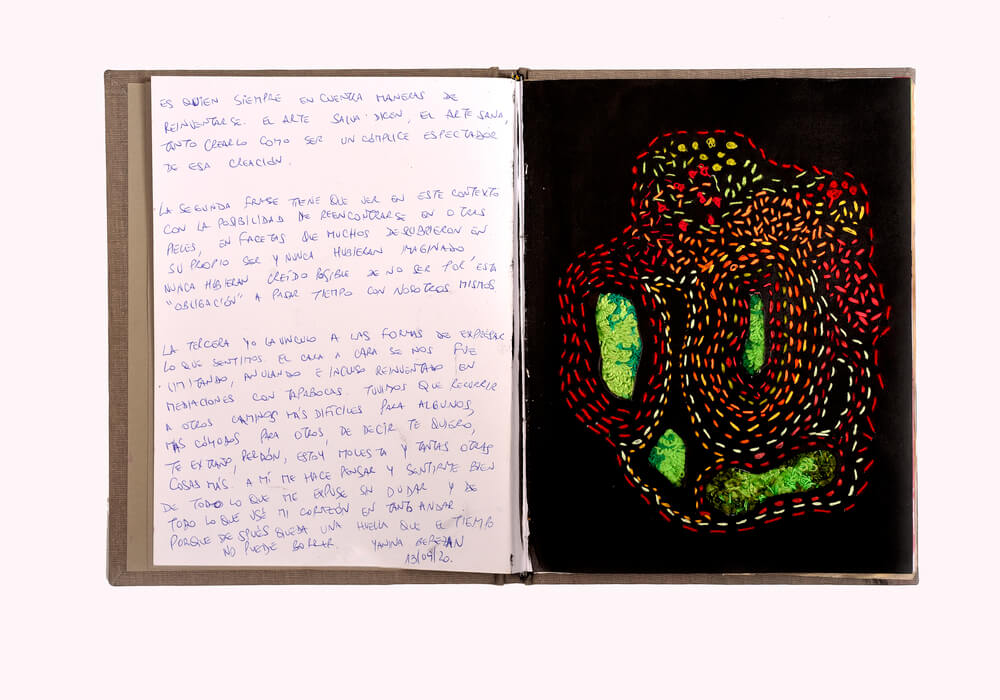 ES QUIEN SIEMPRE ENCUENTRA MANERAS DE
REINVENTARSE. EL ARTE SALVA DICEN, EL ARTE SANA,
TANTO CREARLO COMO SER UN CÓMPLICE ESPECTADOR
DE ESA CREACIÓN.
LA SEGUNDA FRASE TIENE QUE VER EN ESTE CONTEXTO
CON LA POSIBILIDAD DE REENCONTRARSE EN OTRAS
PIELES, EN FACETAS QUE MUCHOS DESCUBRIERON EN
SU PROPIO SER Y NUNCA HUBIERAN IMAGINADO
NUNCA HUBIERAN CREÍDO POSIBLE DE NO SER POR ESTA
"OBLIGACIÓN" A PASAR TIEMPO CON NOSOTROS MISMOS
LA TERCERA YO LA VINCULO A LAS FORMAS DE EXPRESAR
LO QUE SENTIMOS. EL CARA A CARA SE NOS FUE
LIMITANDO, ANULANDO E INCLUSO REINVENTADO EN
MEDIACIONES CON TAPABOCAS. TUVIMOS QUE RECURRIR
A OTROS CAMINOS MÁS DIFÍCILES PARA ALGUNOS,
MÁS CÓMODOS PARA OTROS, DE DECIR TE QUIERO,
TE EXTRAÑO, PERDÓN, ESTOY MOLESTA Y TANTAS OTRAS
COSAS MÁS. A MÍ ME HACE PENSAR Y SENTIRME BIEN
DE TODO LO QUE ME EXPUSE SIN DUDAR Y DE
TODO LO QUE USÉ MI CORAZÓN EN TANTO ANDAR
PORQUE DESPUÉS QUEDA UNA HUELLA QUE EL TIEMPO
NO PUEDE BORRAR. YANINA
13/09/20.